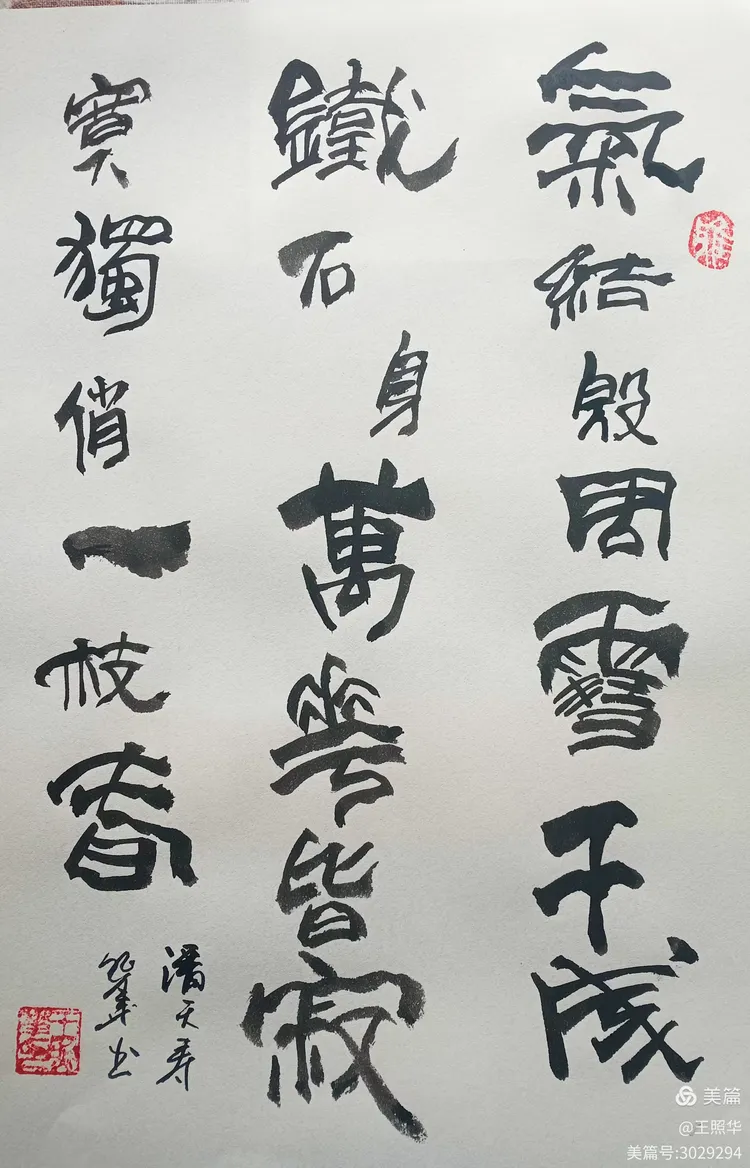 氣結殷周雪千成
鐵石身萬花皆寂
寞獨俏一枝春
潘天寿
照華书
美篇
@王照华
美篇号:3029294